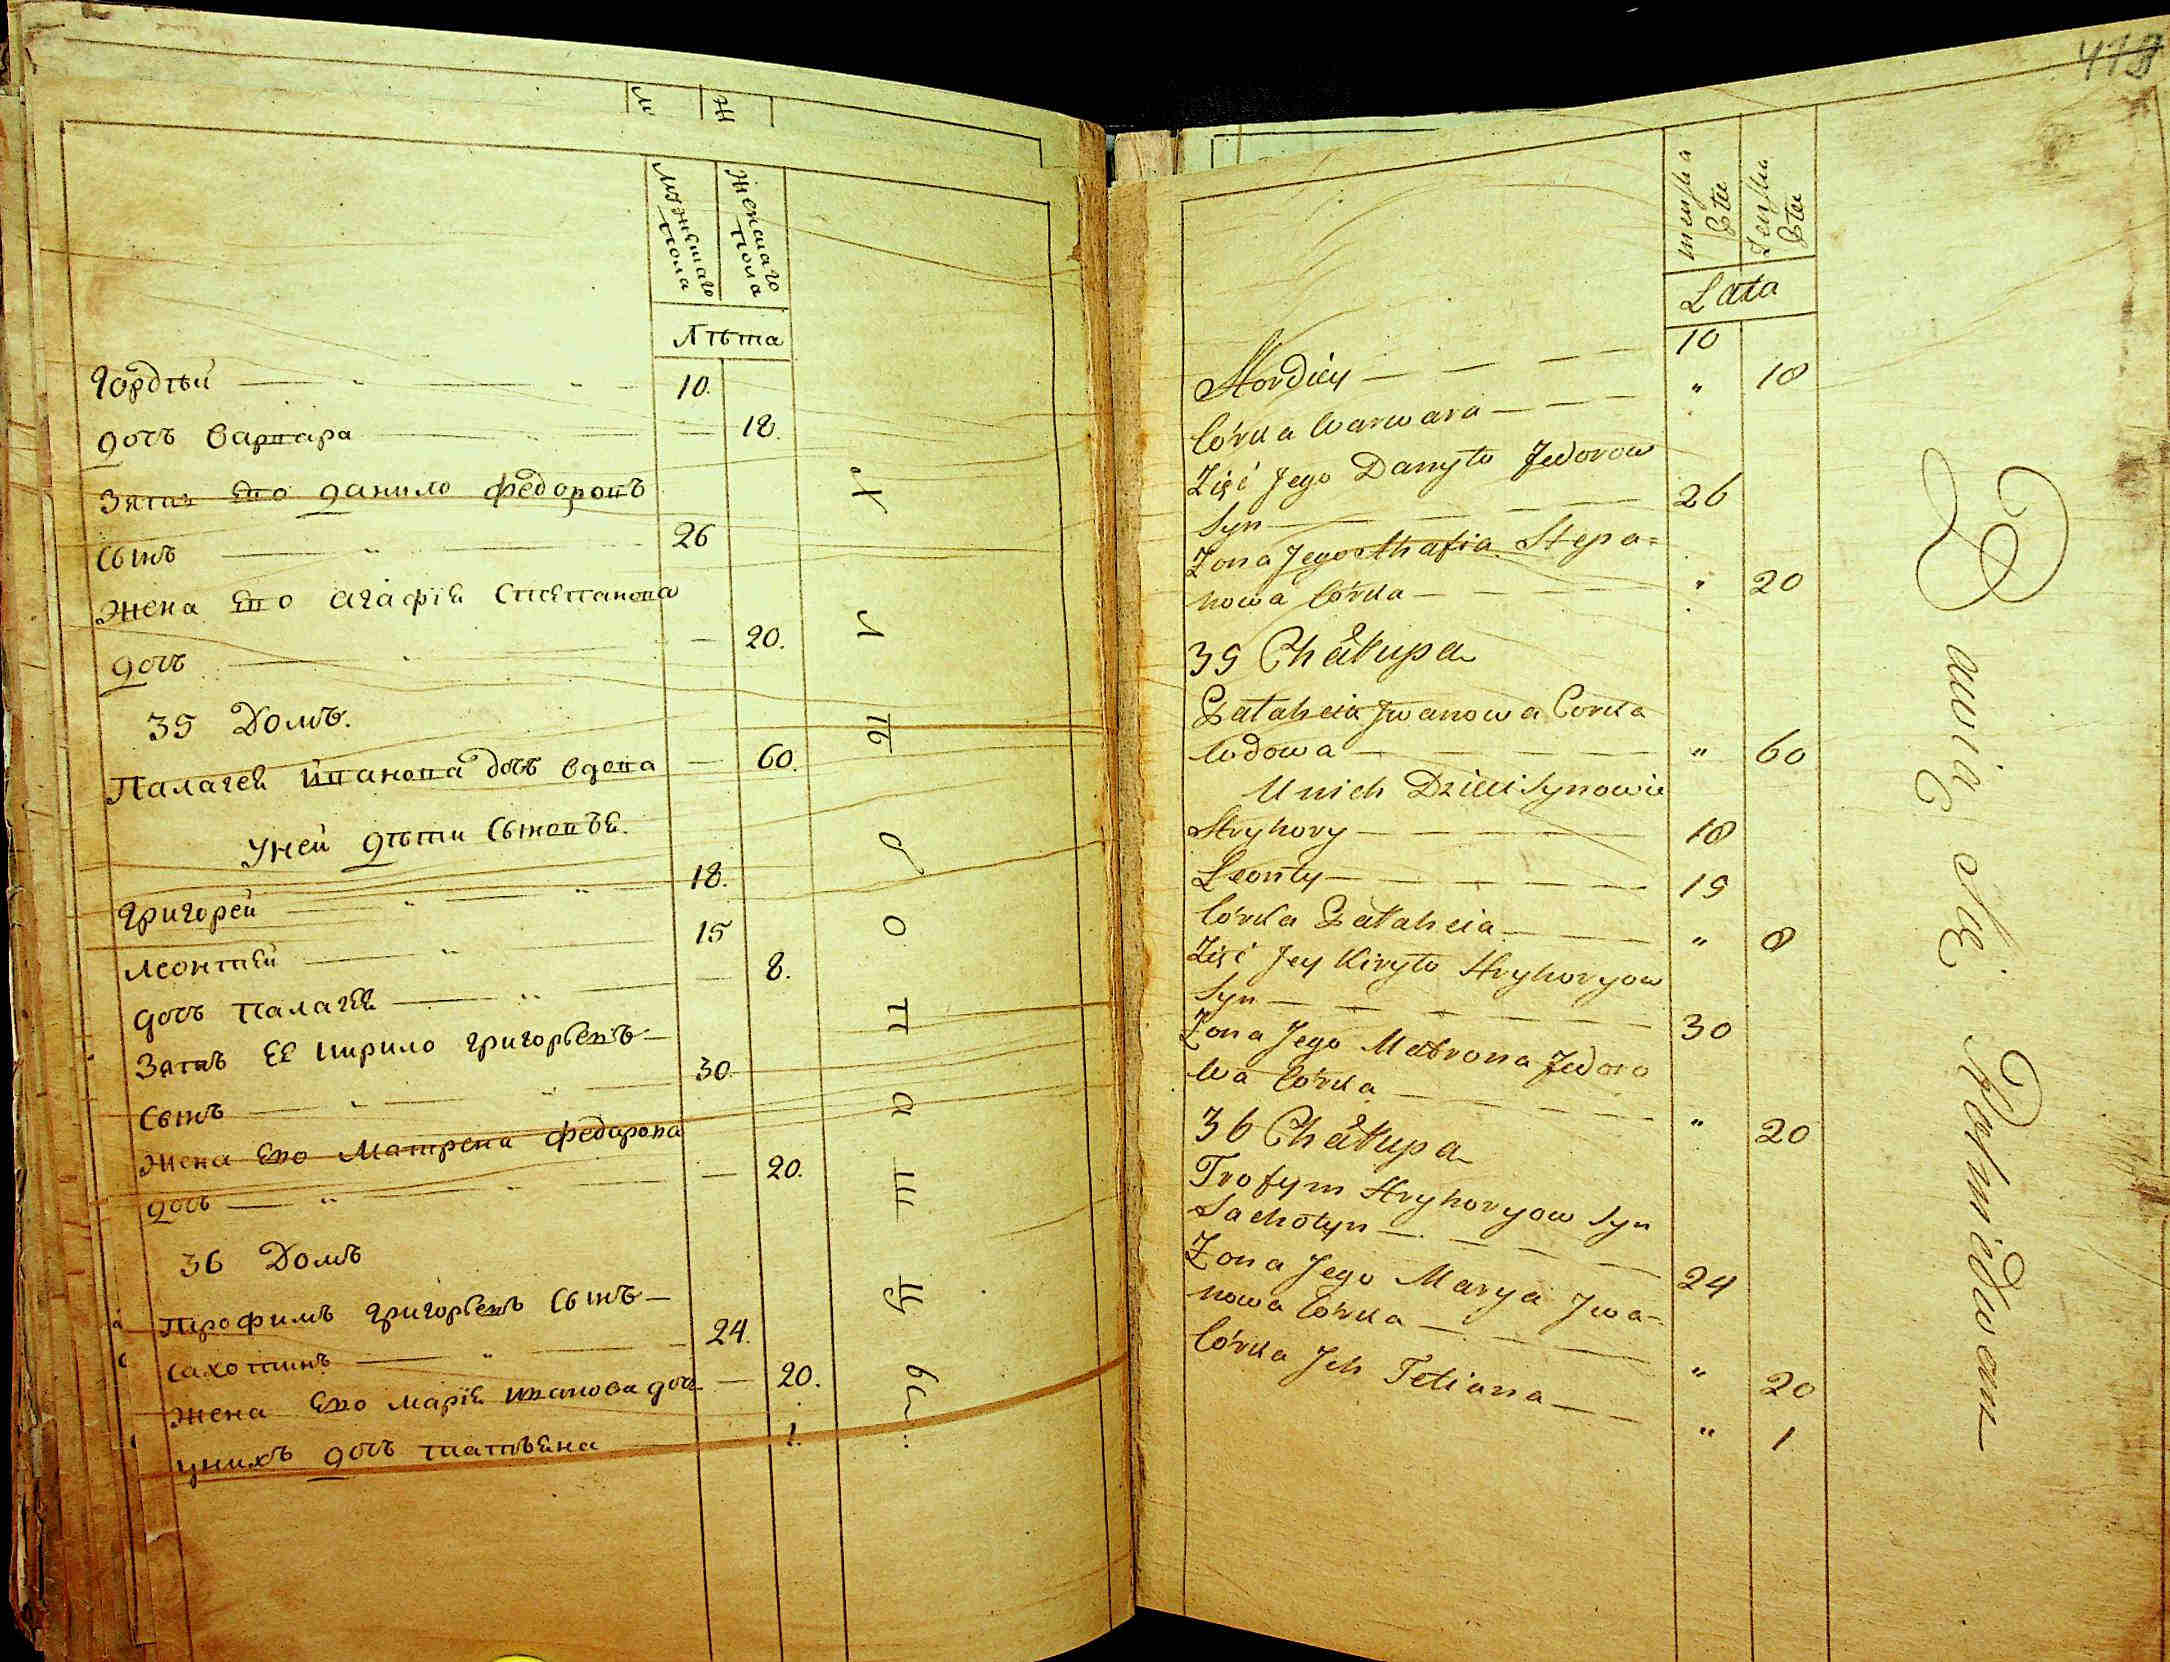 М Ж
Мужескаго пола Женскаго пола
Лѣта
Гордѣй — " — " — 10.
дочь варвара — — 18.
Зять Его данило федоровъ
сынъ — " — 26
жена Его агафія степанова
дочь — " — — 20.
35 Домъ.
Палагея иванова дочь вдова — 60.
у ней дѣти сыновья.
григорей — " — " — 18.
леонтей — " — 15
дочь палагея — " — — 8.
Зять ея кирило григорьевъ —
сынъ — " — " — 30.
жена Его Матрена федорова
дочь — " — " — — 20.
36 Домъ
Трофимъ григорьевъ сынъ —
сахотинъ — " — 24.
жена Его марія иванова доч. — 20.
у нихъ дочь татьяна 1.
419
męska Płeć Żeńska Płeć
Lata
Hordiey — — — 10
Córka Warwara — — — " 18
Zięć Jego Danyło Fedorow
Syn — — — 26
Zona Jego Ahafia Stepa=
nowa Córka — — — " 20
35 Chałupa
Pałaheia Jwanowa Corka
Wdowa — — — " 60
U nich Dzieci Synowie
Hryhory — — — 18
Leonty — — — 15
Córka Pałaheia — — " 8
Zięć Jey Kiryło Hryhoryow
Syn — — — 30
Zona Jego Matrona Fedoro
wa Córka — — — " 20
36 Chałupa
Trofym Hryhoryow Syn
Sachotyn — — — 24
Zona Jego Marya Jwa=
nowa Córka — — — " 20
Córka Jch Tetiana — — " 1